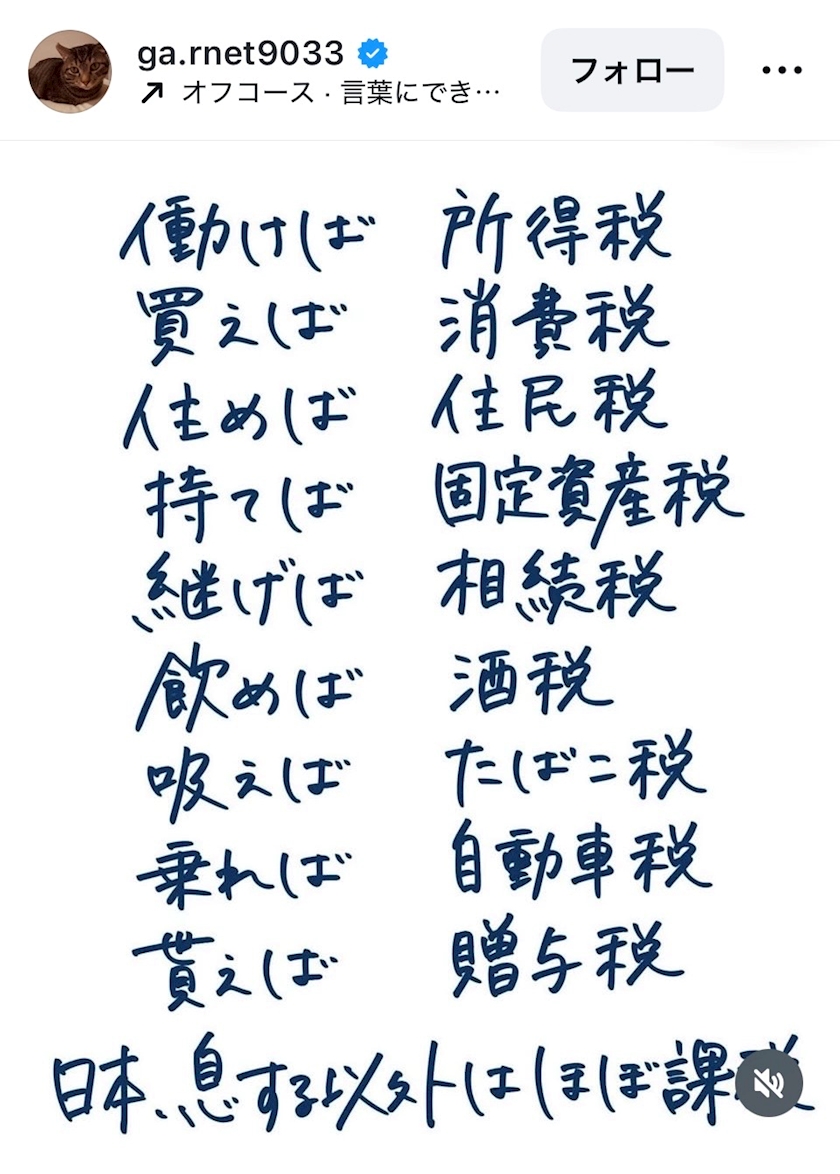 ga.rnet9033
オフコース · 言葉にでき…
フォロー
働けば 所得税
買えば 消費税
住めば 住民税
持てば 固定資産税
継げば 相続税
飲めば 酒税
吸えば たばこ税
乗れば 自動車税
貰えば 贈与税
日本、息する以外はほぼ課税